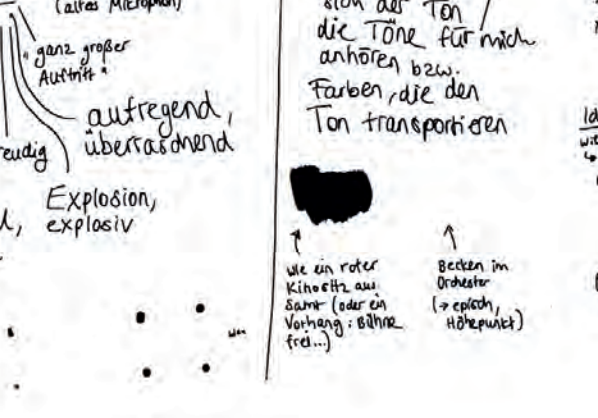 (altes Mikrophon)
"ganz großer
Auftritt"
aufregend,
überraschend
eudig
Explosion,
explosiv
sich der Ton /
die Töne für mich
anhören bzw.
Farben, die den
Ton transportieren
wie ein roter
Kinositz aus
Samt (oder ein
Vorhang: Bühne
frei...)
Becken im
Orchester
(→ episch,
Höhepunkt)